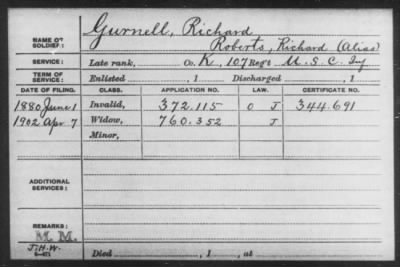 NAME OF SOLDIER: Gurnell, Richard
Roberts, Richard (Alias)
SERVICE: Late rank, Co. K, 107 Reg't U.S.C. Inf
TERM OF SERVICE: Enlisted , 1 Discharged , 1
DATE OF FILING. CLASS. APPLICATION NO. LAW. CERTIFICATE NO.
1880 June 1 Invalid, 372.115 O J 344.691
1902 Apr 7 Widow, 760.352 J
Minor,
ADDITIONAL SERVICES:
REMARKS:
M. M.
J.H.W.
Died , 1 , at